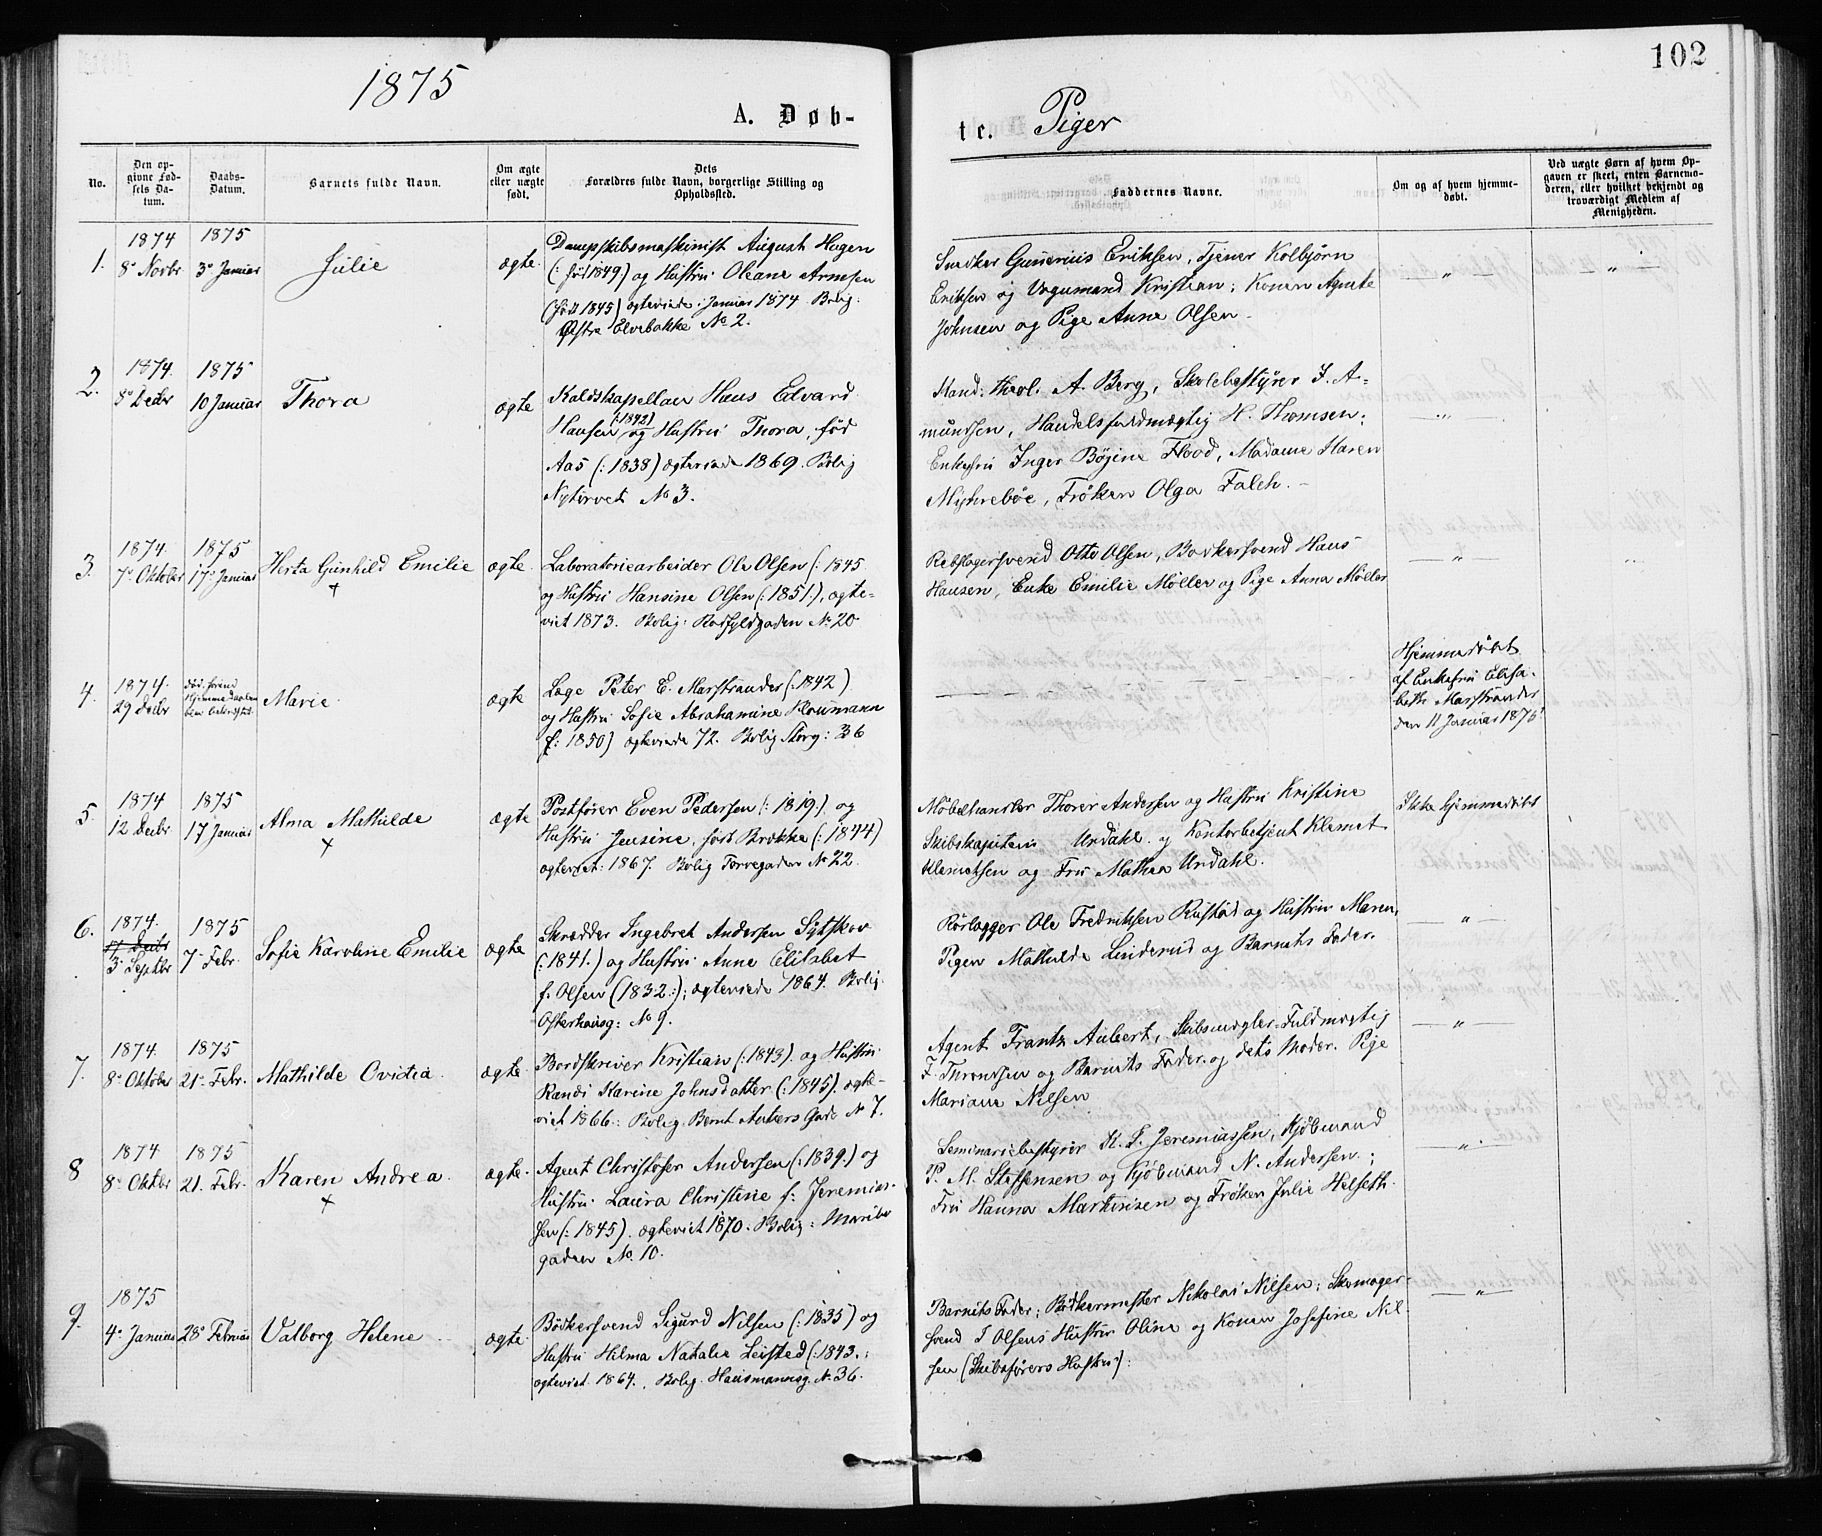 102
1875
A. Døb-
te.
Piger
No.
Den op-
givne Fød-
sels Da-
tum.
Daabs-
Datum.
Barnets fulde Navn.
Om ægte
eller uægte
født.
Dets
Forældres fulde Navn, borgerlige Stilling og
Opholdssted.
Faddernes Navne.
Om og af hvem hjemme-
døbt.
Ved uægte Børn af hvem Op-
gaven er skeet, enten Barnemo-
deren, eller hvilket bekjendt og
troværdigt Medlem af
Menigheden.
1.
1874
8de Novbr
1875
3de Januar
Julie
ægte.
Dampskibsmaskinist August Hagen
(: fød 1849) og Hustru Oleane Arnesen
(fød 1845) ægteviede i Januar 1874 Bolig:
Østre Elvebakke No 2.
Snedker Gunerius Eriksen, Tjener Kolbjørn
Eriksen og Vognmand Kristian; Konen Agnete
Johnsen og Pige Anne Olsen.
2.
1874.
8de Decbr
1875
10 Januar
Thora
ægte
Kaldskapellan Hans Edvard
Hansen (: 1842) og Hustru Thora, fød
Aas (: 1838) ægteviede 1869. Bolig
Nytorvet No 3.
Stand: theol. A. Berg, Skolebestyrer J. A-
mundsen, Handelsfuldmægtig H. Thomsen;
Enkefru Inger Bøjine Flood, Madame Maren
Myhrebøe, Frøken Olga Falch.
3.
1874.
7de Oktober
1875
17de Januar
Herta Gunhild Emilie
+
ægte
Laboratoriearbeider Ole Olsen (: 1845
og Hustru Hansine Olsen (: 1851:), ægte-
viet 1873. Bolig: Rødfyldgaden No 20
Rebslagersvend Otto Olsen, Bødkersvend Hans
Hansen, Enke Emilie Møller og Pige Anna Møller
4.
1874.
29 Decbr
død, førend
Hjemmedaaben
blev bekræftet.
Marie
ægte
Læge Peter E. Marstrander (: 1842)
og Hustru Sofie Abrahamine Kloumann
f: 1850) ægteviede 72. Bolig Storg: 36
Hjemmedøbt
af Enkefru Elisa-
beth Marstrander
den 11 Januar 1875
5.
1874
12 Decbr
1875
17 Januar
Alma Mathilde
+
ægte
Postfører Even Pedersen (: 1819:) og
Hustru Jensine, født Brække (: 1844)
ægteviet: 1867. Bolig Torvegaden No 22.
Møbelhandler Thorer Andersen og Hustru Kristine
Skibskapitein Undahl og Kontorbetjent Klemet
Klemetsen og Fru Mathea Undahl.
Ikke hjemmedøbt
6.
1874.
3 Septbr
1875
7de Febr.
Sofie Karoline Emilie
ægte
Skrædder Ingebret Andersen Sytskov
(: 1841.) og Hustru Anne Elisabet
f. Olsen (1832:); ægteviede 1864. Bolig
Osterhausg: No 9.
Rørlægger Ole Fredriksen Rustad og Hustru Maren,
Pigen Mathilde Linderud og Barnets Fader.
7.
1874.
8de Oktober
1875
21de Febr.
Mathilde Ovidia
ægte
Bordskriver Kristian (: 1843) og Hustru
Randi Karine Johnsdatter (: 1845). ægte-
viet 1866.: Bolig. Bernt Ankers Gade No 7.
Agent Frantz Aubert, Skibsmægler-Fuldmægtig
F. Throndsen og Barnets Fader og dets Moder. Pige
Mariane Nilsen
8
1874
8de Oktber
1875
21. Febr.
Karen Andrea
+
ægte
Agent Christofer Andersen (: 1839.) og
Hustru Laura Christine f: Jeremias-
sen (: 1845). ægteviet 1870. Bolig: Maribo
gaden No. 10.
Seminariebestyrer K. E. Jeremiassen, Kjøbmand
P. M. Steffensen og Kjøbmand N. Andersen;
Fru Hanna Martinsen og Frøken Julie Helseth.
9.
1875
4de Januar
28de Februar
Valborg Helene
ægte
Bødkersvend Sigurd Nilsen (: 1835) og
Hustru Hilma Natalie Leisted (: 1843.:
ægteviet 1864. Bolig. Hausmannsg. No 36.
Barnets Fader; Bødkermester Nikolai Nilsen; Skomager-
svend J Olsens Hustru Oline og Konen Josefine Nil-
sen (Skibsførers Hustru):